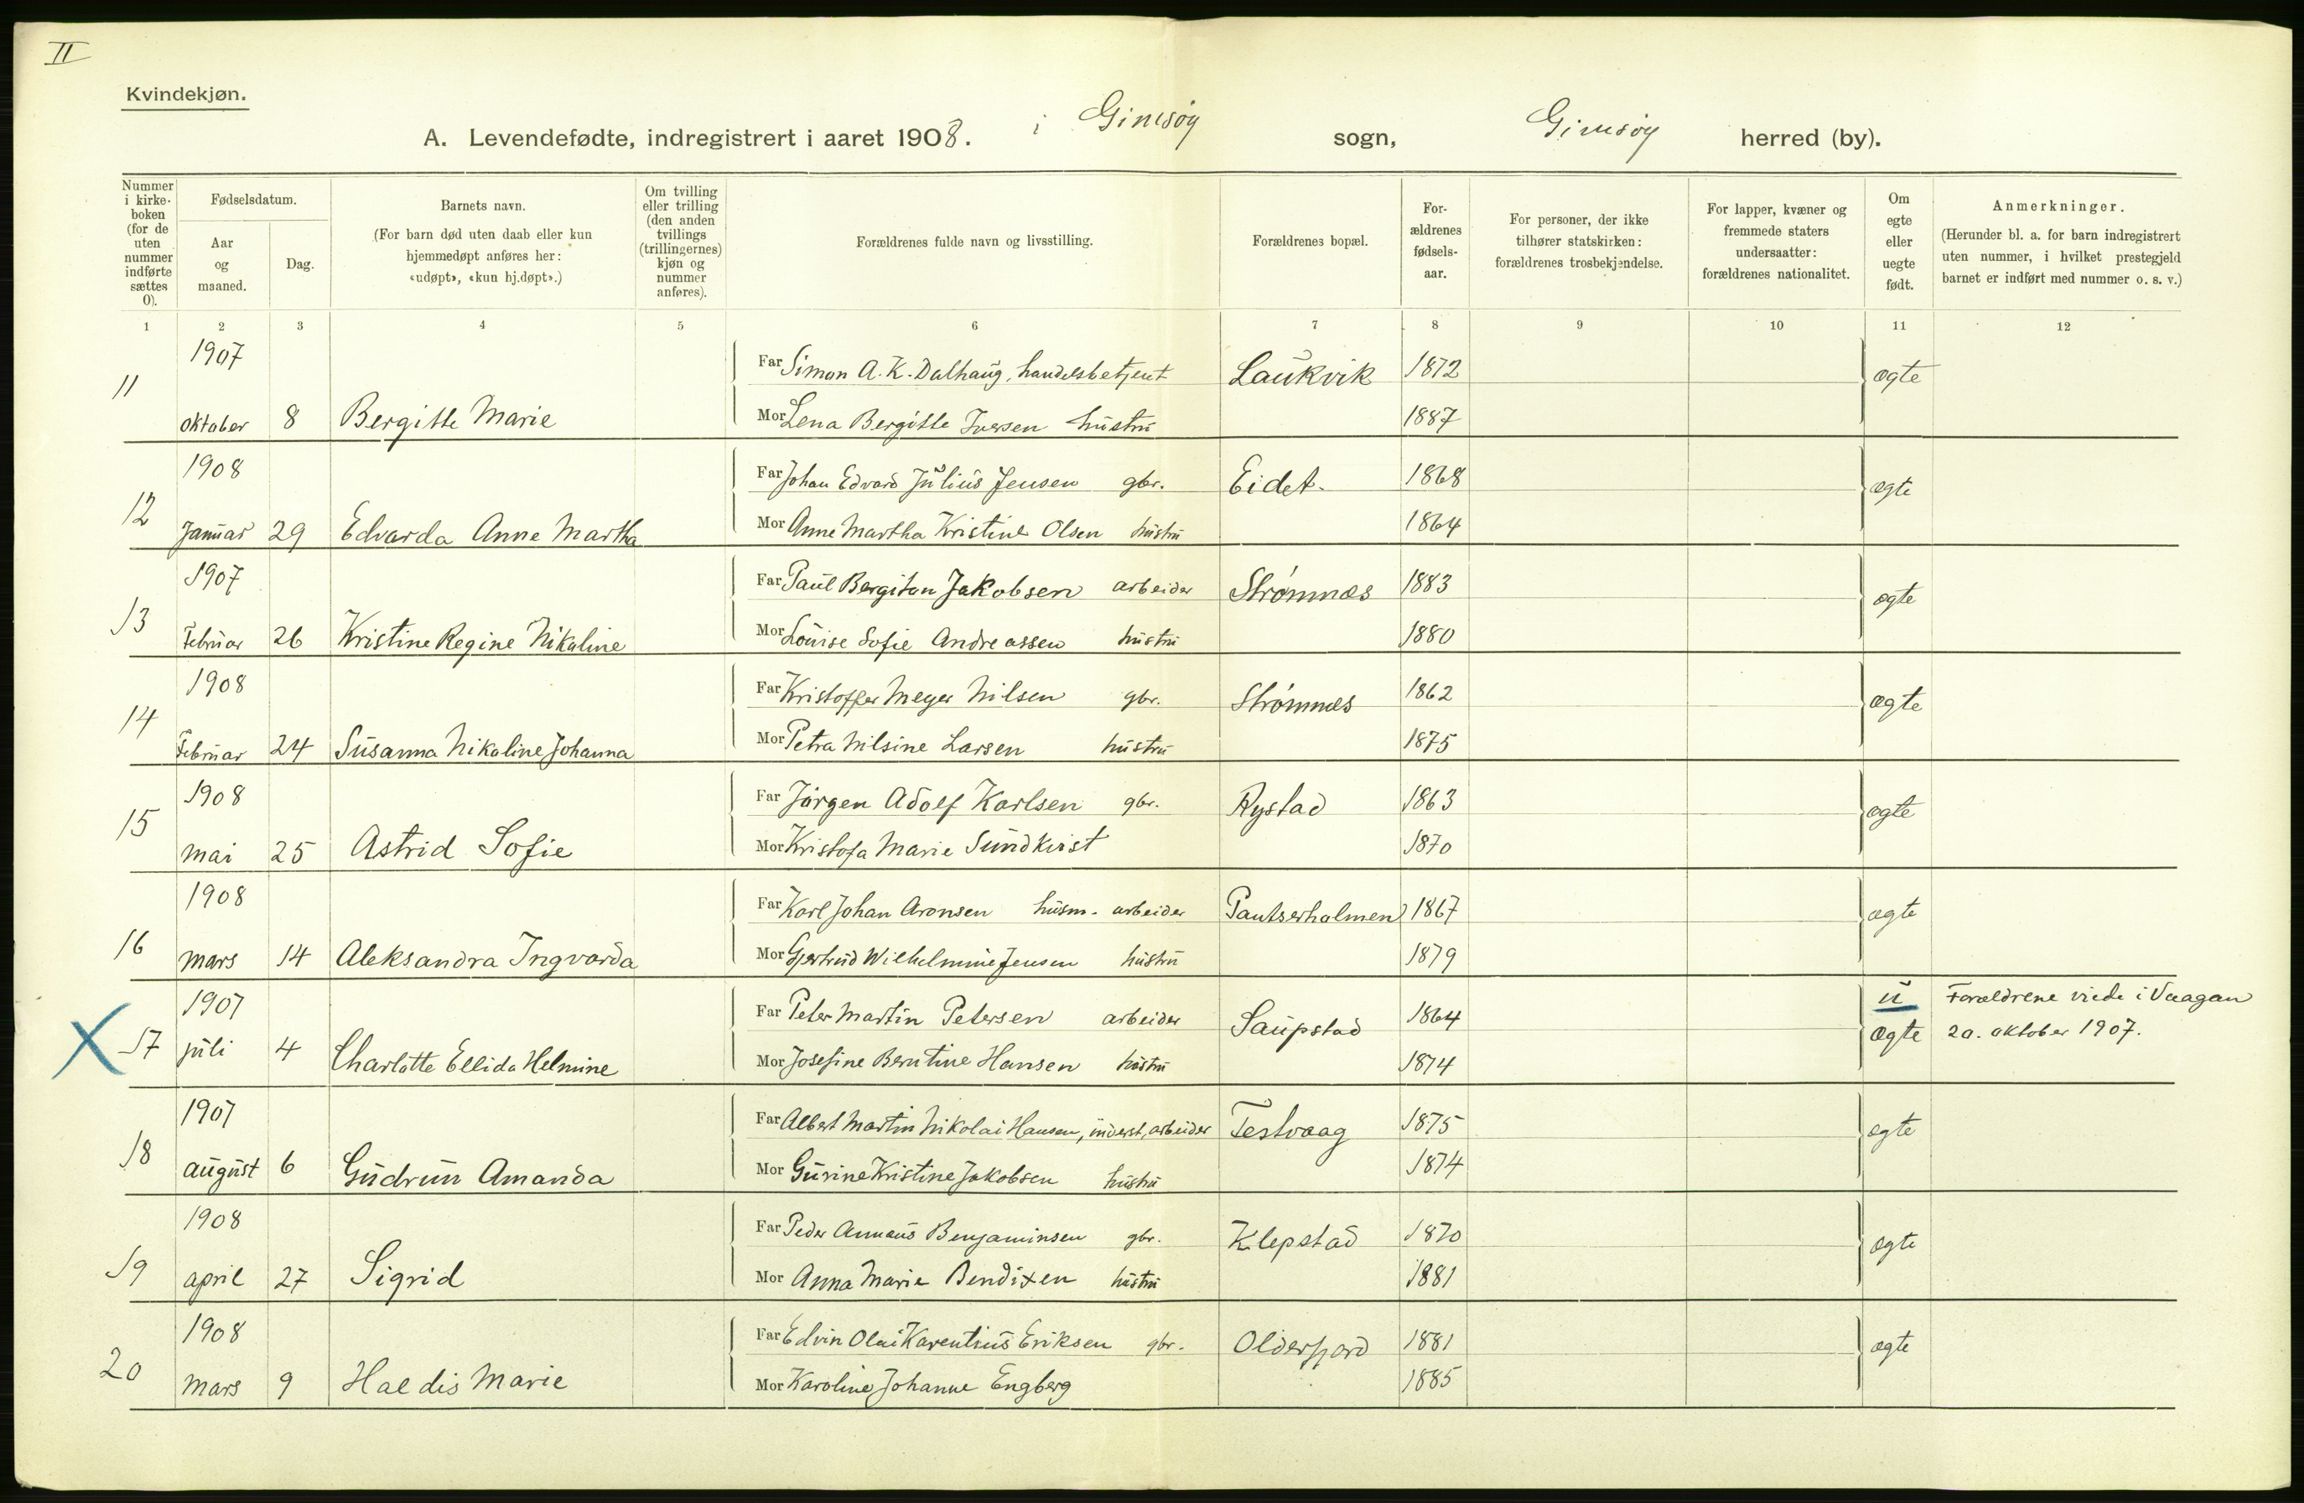 II
Kvindekjøn.
A. Levendefødte, indregistrert i aaret 1908. i Gimsøy sogn, Gimsøy herred (by).
Nummer i kirke-boken (for de uten nummer indførte sættes 0).
Fødselsdatum.
Aar og maaned.
Dag.
Barnets navn.
(For barn død uten daab eller kun hjemmedøpt anføres her: «udøpt», «kun hj.døpt».)
Om tvilling eller trilling (den anden tvillings (trillingernes) kjøn og nummer anføres).
Forældrenes fulde navn og livsstilling.
Forældrenes bopæl.
For-ældrenes fødsels-aar.
For personer, der ikke tilhører statskirken: forældrenes trosbekjendelse.
For lapper, kvæner og fremmede staters undersaatter: forældrenes nationalitet.
Om egte eller uegte født.
Anmerkninger.
(Herunder bl. a. for barn indregistrert uten nummer, i hvilket prestegjeld barnet er indført med nummer o. s. v.)
1 2 3 4 5 6 7 8 9 10 11 12
1907 Far Simon A. K. Dalhaug, handelsbetjent Laukvik 1872 ægte
11 oktober 8 Bergitte Marie Mor Lena Bergitte Iversen hustru 1887
1908 Far Johan Edvard Julius Jensen gbr. Eidet. 1868 ægte
12 Januar 29 Edvarda Anne Martha Mor Anne Martha Kristine Olsen hustru 1864
1907 Far Paul Bergiton Jakobsen arbeider Strømnæs 1883 ægte
13 Februar 26 Kristine Regine Nikoline Mor Louise Sofie Andreassen hustru 1880
1908 Far Kristoffer Meyer Nilsen gbr. Strømnes 1862 ægte
14 Februar 24 Susanna Nikoline Johanna Mor Petra Nilsine Larsen hustru 1875
1908 Far Jørgen Adolf Karlsen gbr. Rystad 1863 ægte
15 mai 25 Astrid Sofie Mor Kristofa Marie Sundkvist 1870
1908 Far Karl Johan Aronsen husm. arbeider Pantserholmen 1867 ægte
16 mars 14 Aleksandra Ingvarda Mor Gjertrud Wilhelmine Jensen hustru 1879
1907 Far Peter Martin Petersen arbeider Saupstad 1864 u ægte Forældrene viede i Vaagan
X 17 juli 4 Charlotte Ellida Helmine Mor Josefine Berntine Hansen hustru 1874 20. oktober 1907.
1907 Far Albert Martin Nikolai Hansen, inderst, arbeider Festvaag 1875 ægte
18 august 6 Gudrun Amanda Mor Gurine Kristine Jakobsen hustru 1874
1908 Far Peder Annæus Benjaminsen gbr. Klepstad 1870 ægte
19 april 27 Sigrid Mor Anna Marie Bendixen hustru 1881
1908 Far Edvin Olai Karentius Eriksen gbr. Olderfjord 1881 ægte
20 mars 9 Haldis Marie Mor Karoline Johanne Engberg 1885